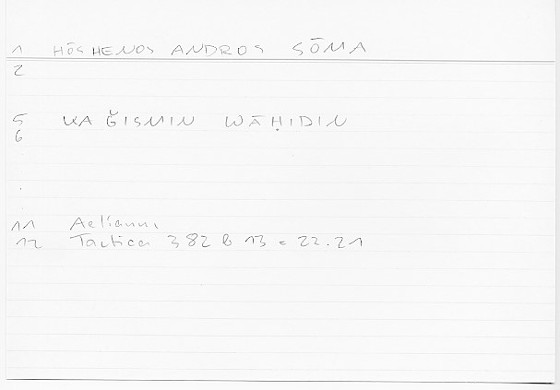 1 HŌS HENOS ANDROS SŌMA
2
5 KA ǦISMIN WĀḤIDIN
6
11 Aelianus
12 Tactica 382 b 13 = 22.21